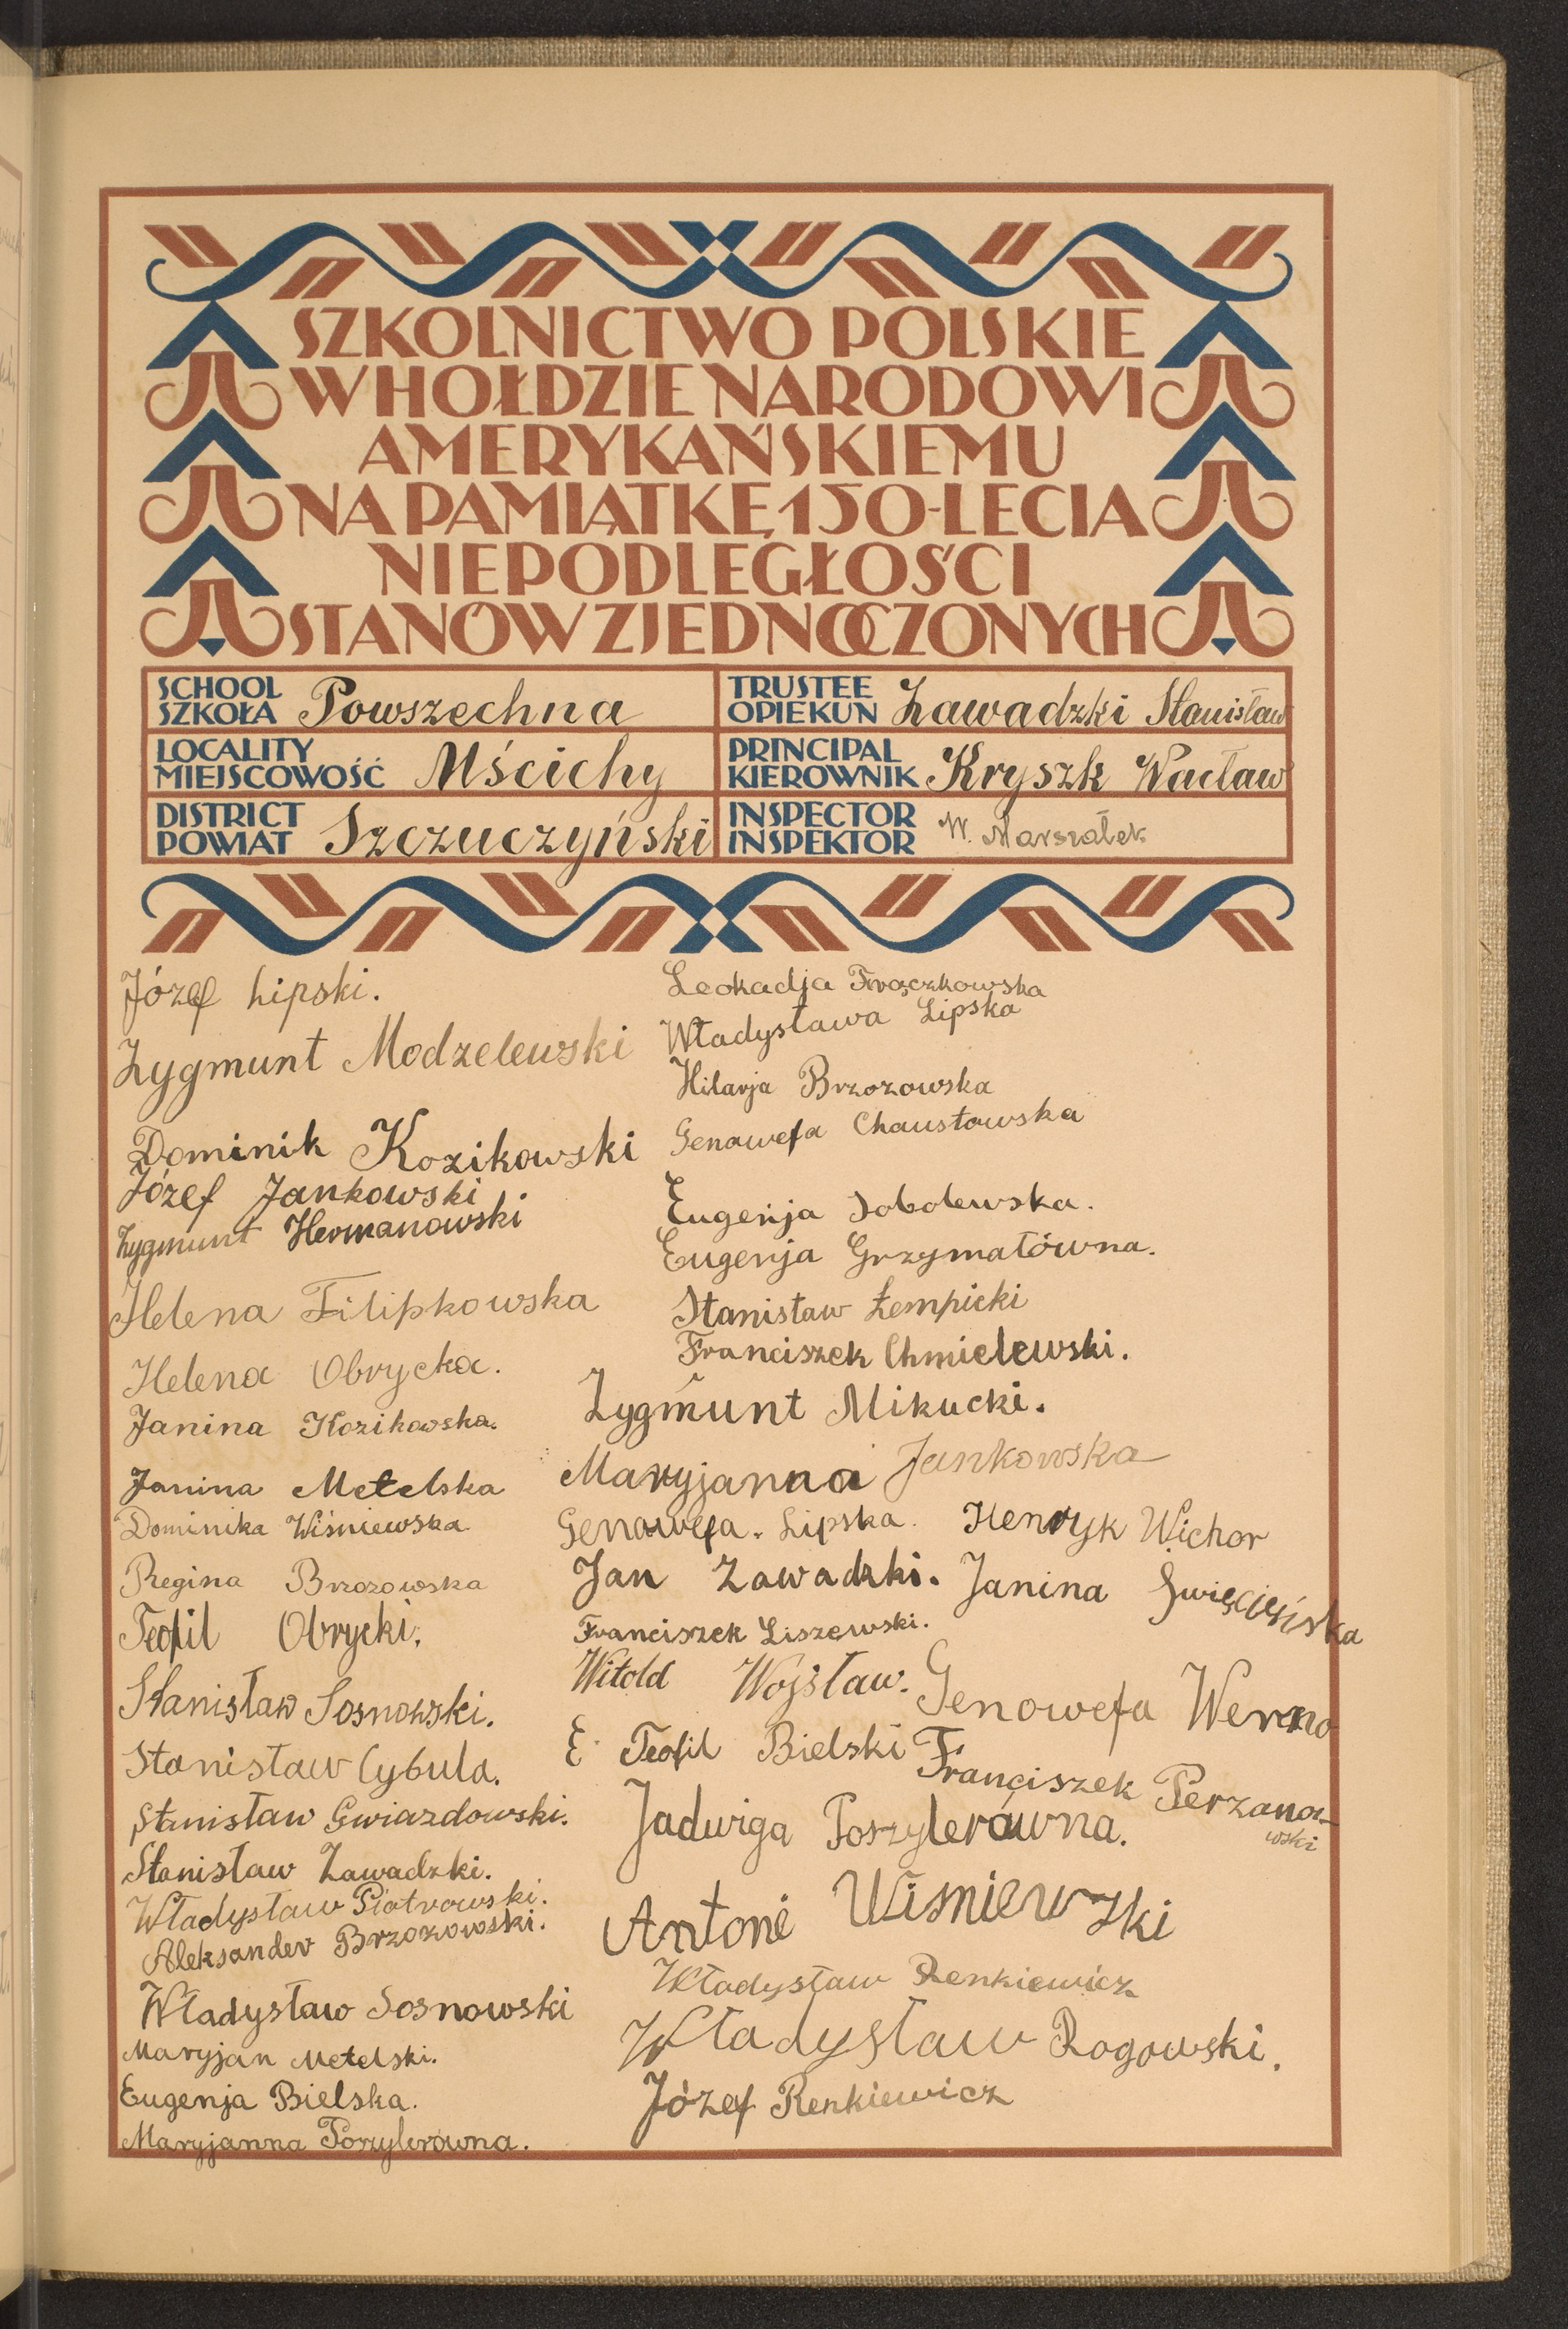 SZKOLNICTWO POLSKIE
W HOŁDZIE NARODOWI
AMERYKAŃSKIEMU
NA PAMIĄTKĘ 150-LECIA
NIEPODLEGŁOŚCI
STANÓW ZJEDNOCZONYCH
SCHOOL
SZKOŁA Powszechna
TRUSTEE
OPIEKUN Zawadzki Stanisław
LOCALITY
MIEJSCOWOŚĆ Mścichy
PRINCIPAL
KIEROWNIK Kryszk Wacław
DISTRICT
POWIAT Szczuczyński
INSPECTOR
INSPEKTOR W. Marszałek
Józef Lipski.
Zygmunt Modzelewski
Dominik Kozikowski
Józef Jankowski
Zygmunt Hermanowski
Helena Filipkowska
Helena Obrycka.
Janina Kozikowska.
Janina Metelska
Dominika Wiśniewska
Regina Brzozowska
Teofil Obrycki.
Stanisław Sosnowski.
Stanisław Cybula.
Stanisław Gwiazdowski.
Stanisław Zawadzki.
Władysław Piotrowski.
Aleksander Brzozowski.
Władysław Sosnowski
Maryjan Metelski.
Eugenja Bielska.
Maryjanna Poszylerówna.
Leokadja Frączkowska
Władysława Lipska
Hilarja Brzozowska
Genowefa Chaustowska
Eugenja Sobolewska.
Eugenja Grzymałówna.
Stanisław Łempicki
Franciszek Chmielewski.
Zygmunt Mikucki.
Maryjanna Jankowska
Genowefa. Lipska. Henryk Wichor
Jan Zawadzki. Janina Święcieńska
Franciszek Liszewski.
Witold Wojsław. Genowefa Werno
E Teofil Bielski Franciszek Perzanowski
Jadwiga Poszylerówna.
Antoni Wiśniewski
Władysław Renkiewicz
Władysław Rogowski.
Józef Renkiewicz